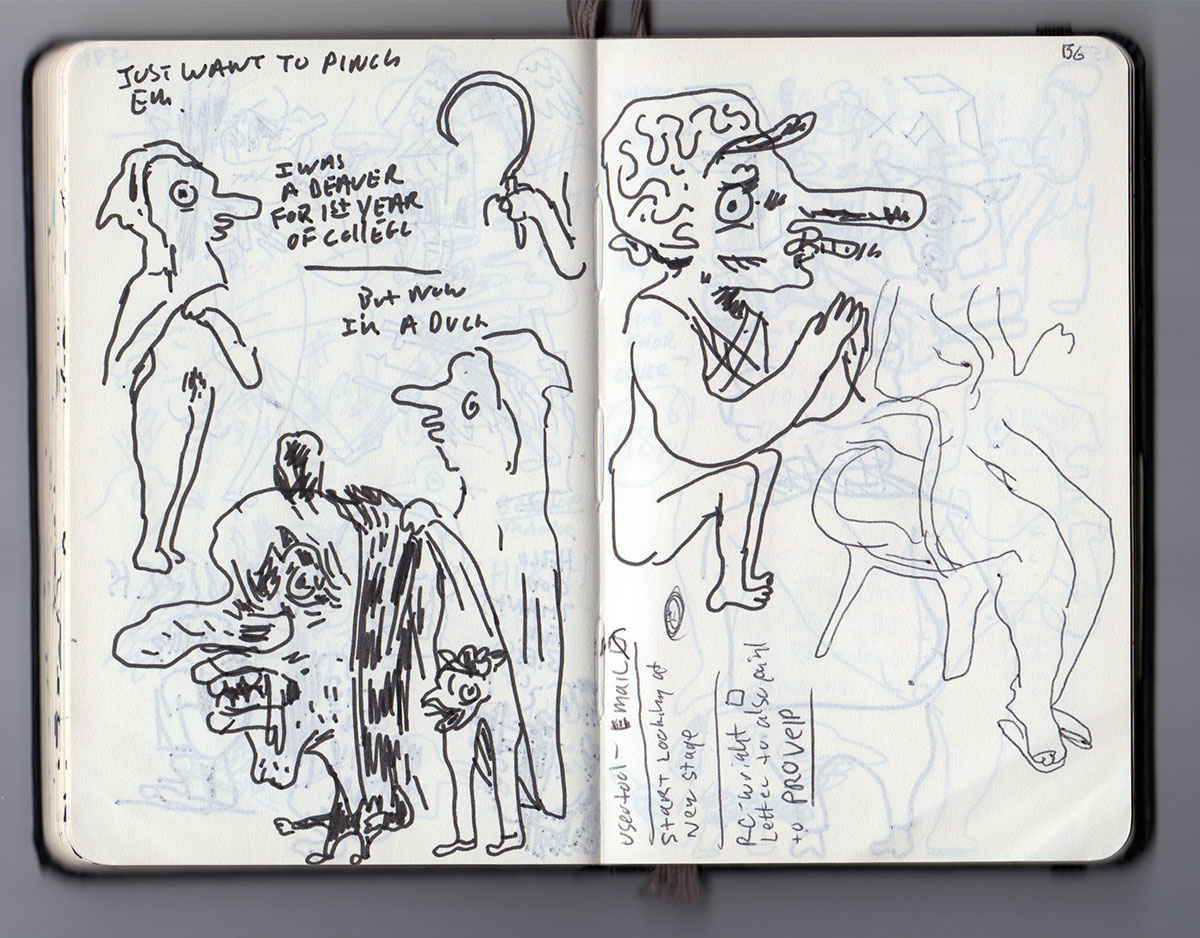 JUST WANT TO PINCH
EM.
I WAS
A BEAVER
FOR 1st YEAR
OF COLLEGE
But Now
I'm A DUCK
156
EMAIL
START Looking at
New Stage
Letter to also
to